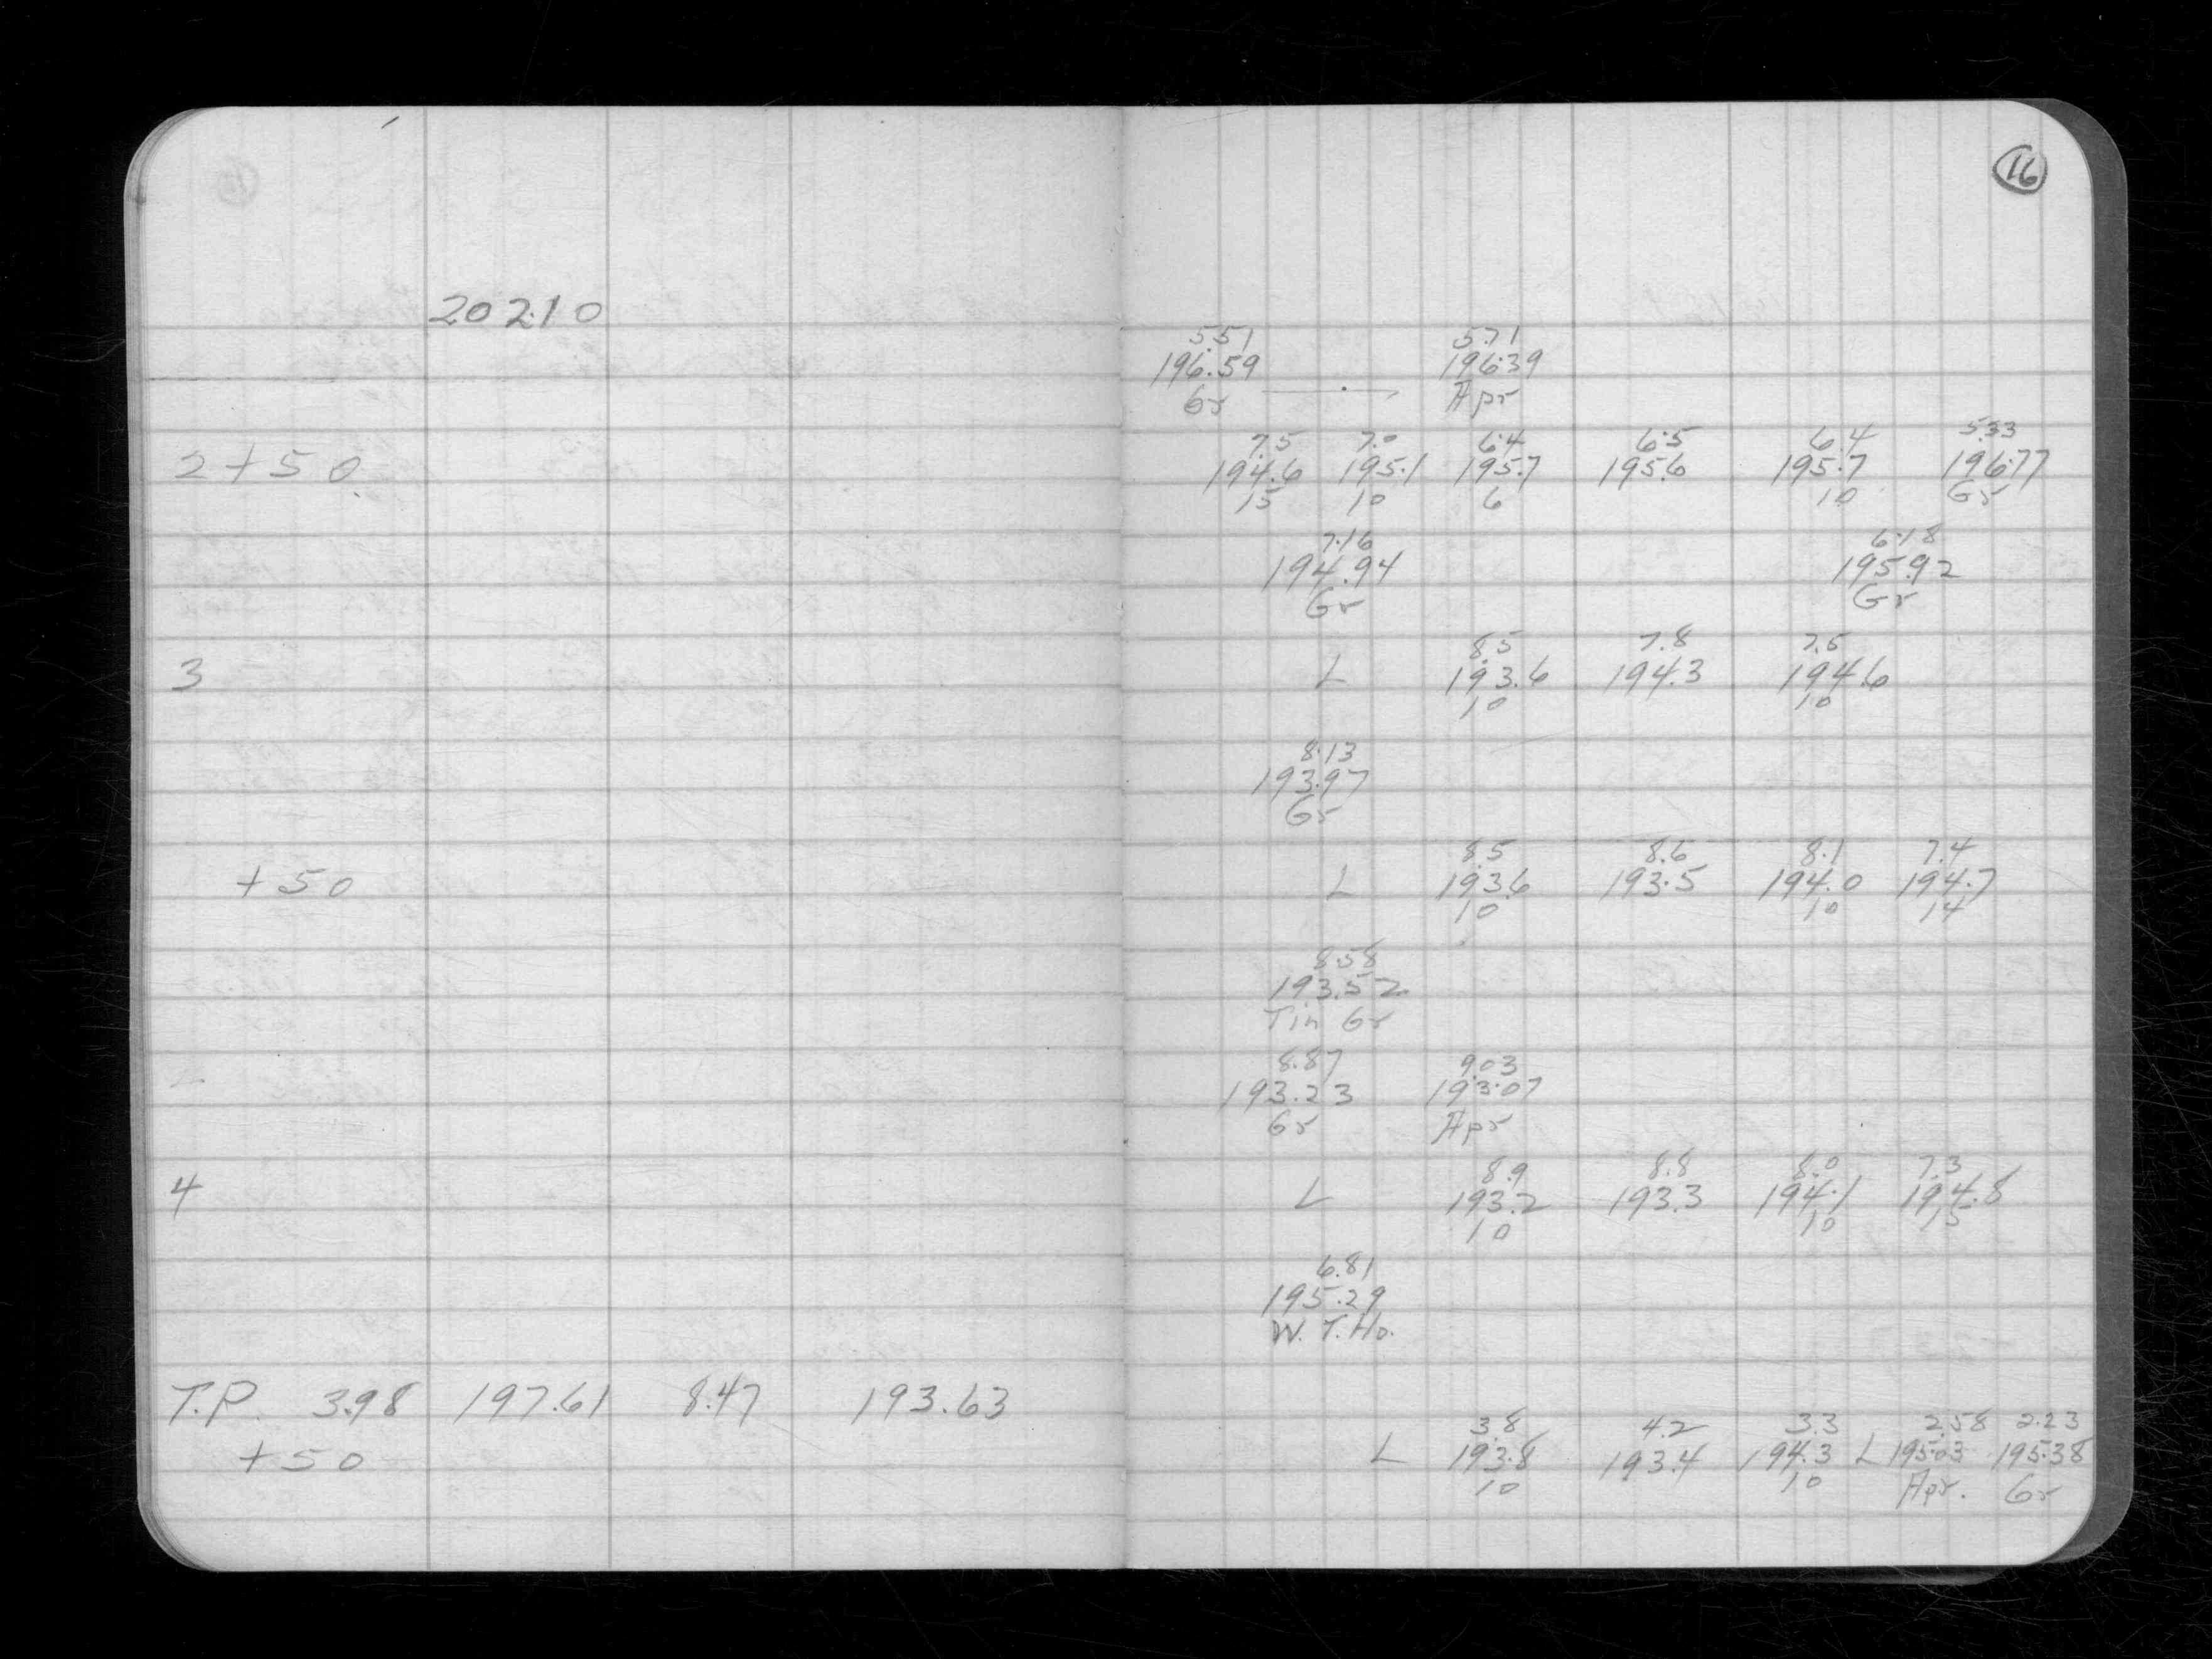 16
202.10
5.51 5.71
196.59 196.39
Gr Apr
7.5 7.0 6.4 6.5 6.4 5.33
2+50 194.6 195.1 195.7 195.6 195.7 196.77
15 10 6 10 Gr
7.16 6.18
194.94 195.92
Gr Gr
8.5 7.8 7.5
3 L 193.6 194.3 194.6
10 10
8.13
193.97
Gr
8.5 8.6 8.1 7.4
+50 L 193.6 193.5 194.0 194.7
10 10 14
8.58
193.52
Tin Gr
8.87 9.03
193.23 193.07
Gr Apr
8.9 8.8 8.0 7.3
4 L 193.2 193.3 194.1 194.8
10 10 15
6.81
195.29
W. T. Ho.
T.P. 3.98 197.61 8.47 193.63
3.8 4.2 3.3 2.58 2.23
+50 L 193.8 193.4 194.3 L 195.03 195.38
10 10 Apr. Gr